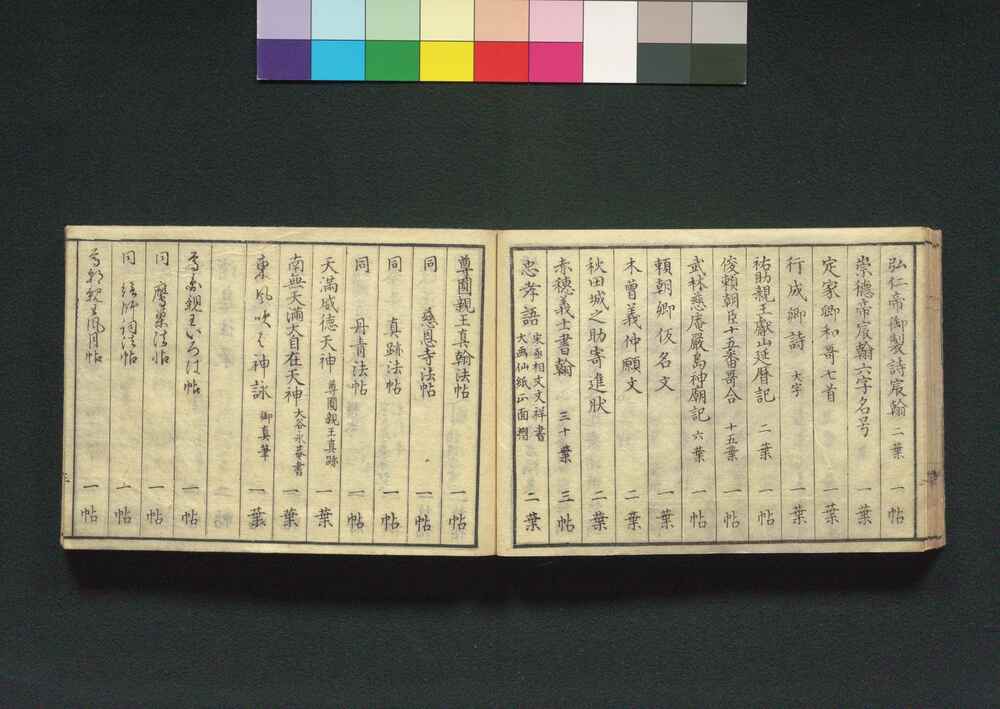 弘仁帝御製詩宸翰 二葉 一帖
崇徳帝宸翰六字名号 一葉
定家卿和哥七首 一葉
行成卿詩 大字 一葉
祐助親王獻山延暦記 二葉 一帖
俊頼朝臣十五番哥合 十五葉 一帖
武林慈庵嚴島神廟記 六葉 一帖
頼朝卿仮名文 一葉
木曽義仲願文 二葉
秋田城之助寄進状 二葉
赤穂義士書翰 三十葉 三帖
忠孝語 宋丞相文文祥書 大画仙紙正面摺 二葉
尊圓親王真翰法帖 一帖
同 慈恩寺法帖 一帖
同 真跡法帖 一帖
同 丹青法帖 一帖
天満威徳天神 尊圓親王真跡 一葉
南無天満大自在天神 大谷永菴書 一葉
東風吹く神詠 御真筆 一葉
親王いろは帖 一帖
同 鷹巣法帖 一帖
同 詞法帖 一帖
親王風月帖 一帖